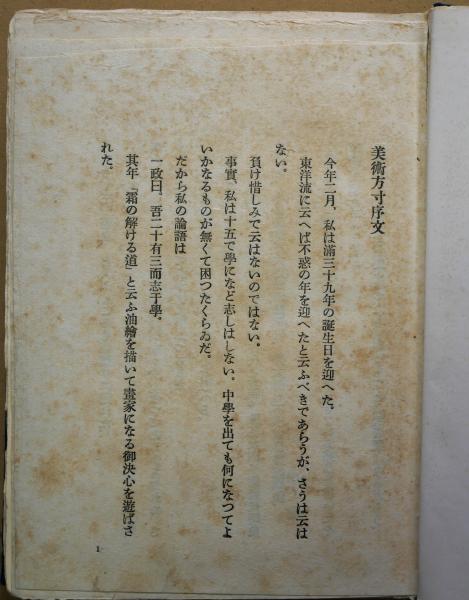 美術方寸序文
今年二月、私は滿三十九年の誕生日を迎へた。
東洋流に云へば不惑の年を迎へたと云ふべきであらうが、さうは云は
ない。
負け惜しみで云はないのではない。
事實、私は十五で學になど志しはしない。中學を出ても何になつてよ
いかなるものが無くて困つたくらゐだ。
だから私の論語は
一政曰。吾二十有三而志于學。
其年「霜の解ける道」と云ふ油繪を描いて畫家になる御決心を遊ばさ
れた。
1